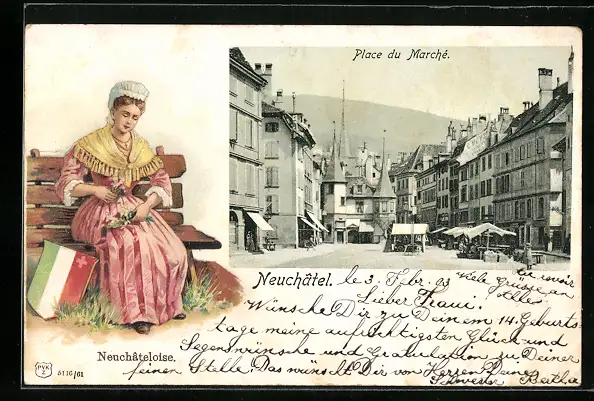 Place du Marché.
Neuchâtel. le 3. Febr. 03
au revoir
viele grüsse an alles
Lieber Franzi.
Wünsche Dir zu Deinem 14. Geburts-
tage meine aufrichtigsten Glück- und
Segenswünsche und Gratulation zu Deiner
feinen Stelle. Das wünscht Dir von Herzen Deine
Schwester Bertha
Neuchâteloise.
PVK
Z
5116/01